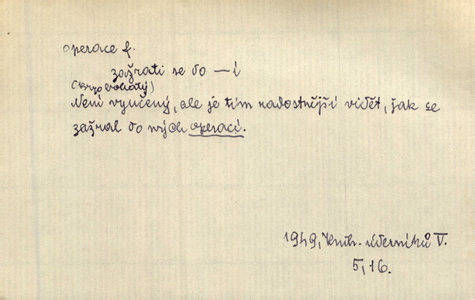 operace f.
zažrati se do —í
Není vyučený, ale je tím radostnější vidět, jak se
zažral do svých operací.
1949, Knih. úderníků V.
5, 16.